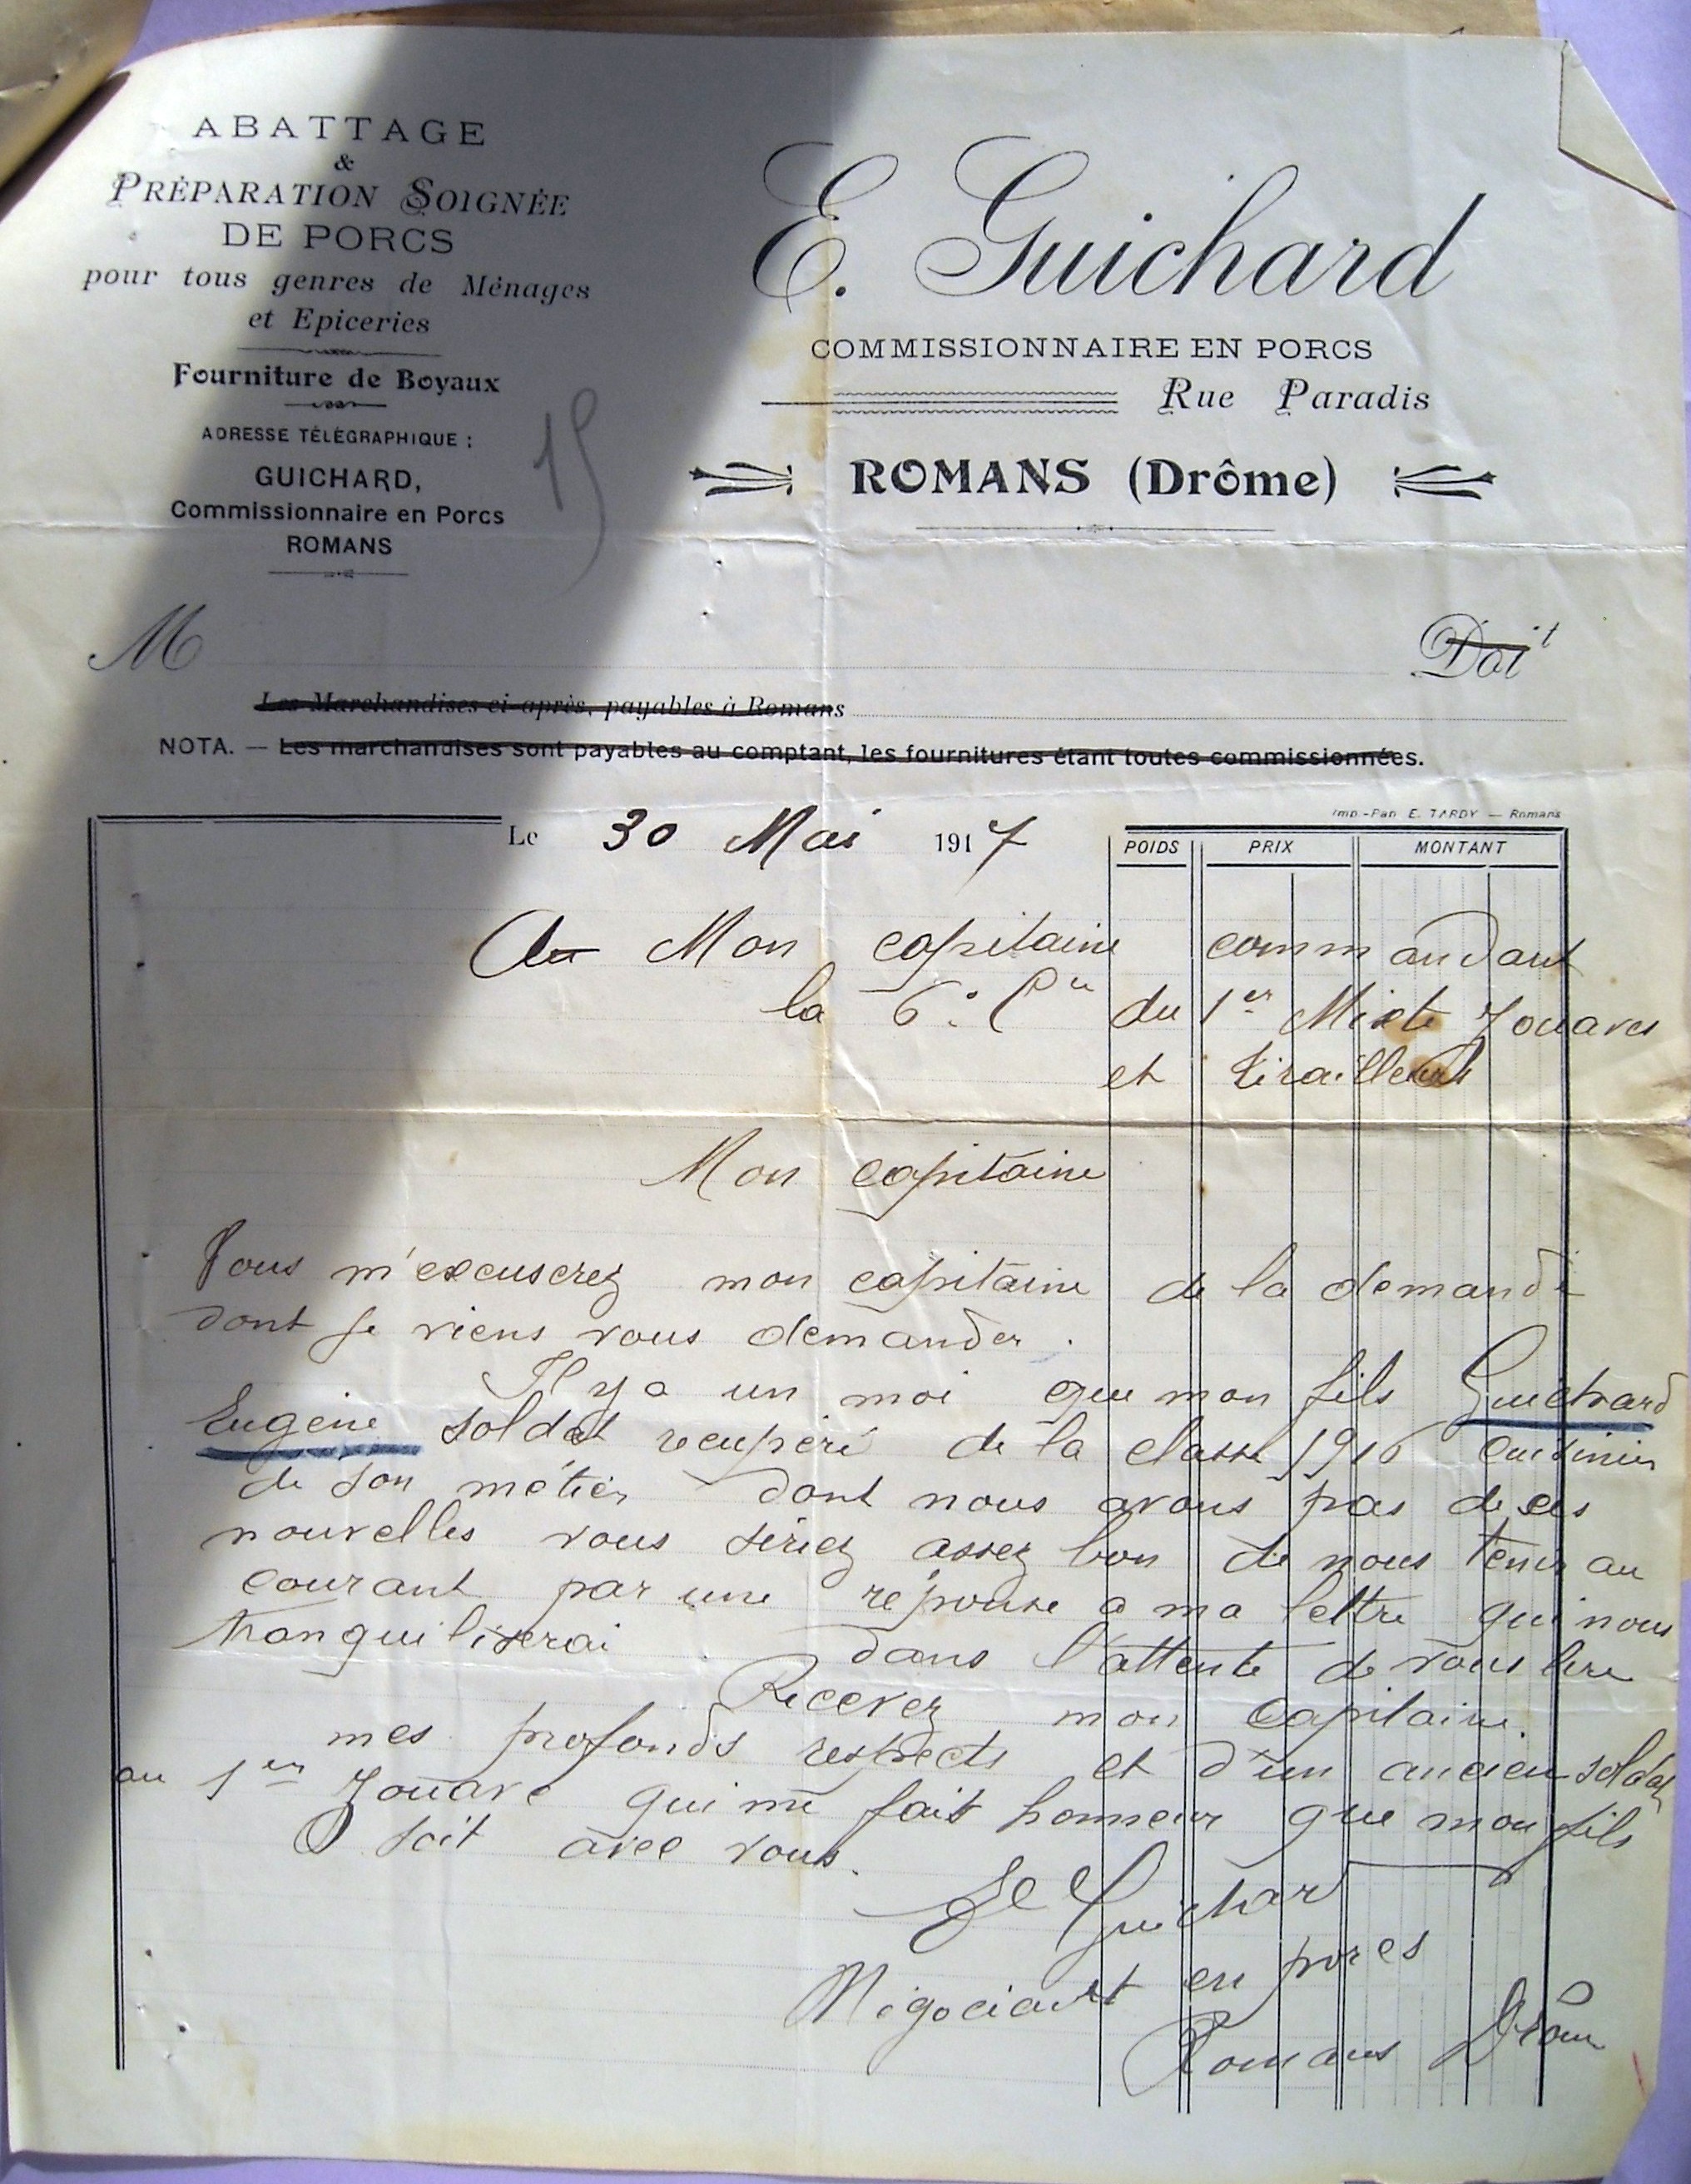 ABATTAGE
&
PRÉPARATION SOIGNÉE
DE PORCS
pour tous genres de Ménages
et Epiceries
Fourniture de Boyaux
ADRESSE TÉLÉGRAPHIQUE :
GUICHARD,
Commissionnaire en Porcs
ROMANS
15
E. Guichard
COMMISSIONNAIRE EN PORCS
Rue Paradis
ROMANS (Drôme)
M
Doit
Les Marchandises ci-après, payables à Romans
NOTA. — Les marchandises sont payables au comptant, les fournitures étant toutes commissionnées.
Imp.-Pap. E. TARDY — Romans
Le 30 Mai 1917
POIDS PRIX MONTANT
Au Mon capitaine commandant
la 6e Cie du 1er Mixte Zouaves
et tirailleurs
Mon capitaine
Vous m'excuserez mon capitaine de la demande
dont je viens vous demander.
Il y a un moi que mon fils Guichard
Eugène soldat recupéré de la classe 1916 cuisinier
de son métier dont nous avons pas de ces
nouvelles vous seriez assez bon de nous tenir au
courant par une réponse a ma lettre qui nous
tranquiliserai dans l'attente de vous lire
Recevez mon capitaine.
mes profonds respects et d'un ancien soldat
au 1er Zouave qui me fait honneur que mon fils
soit avec vous.
El Guichard
Négociant en porcs
Romans Drôme